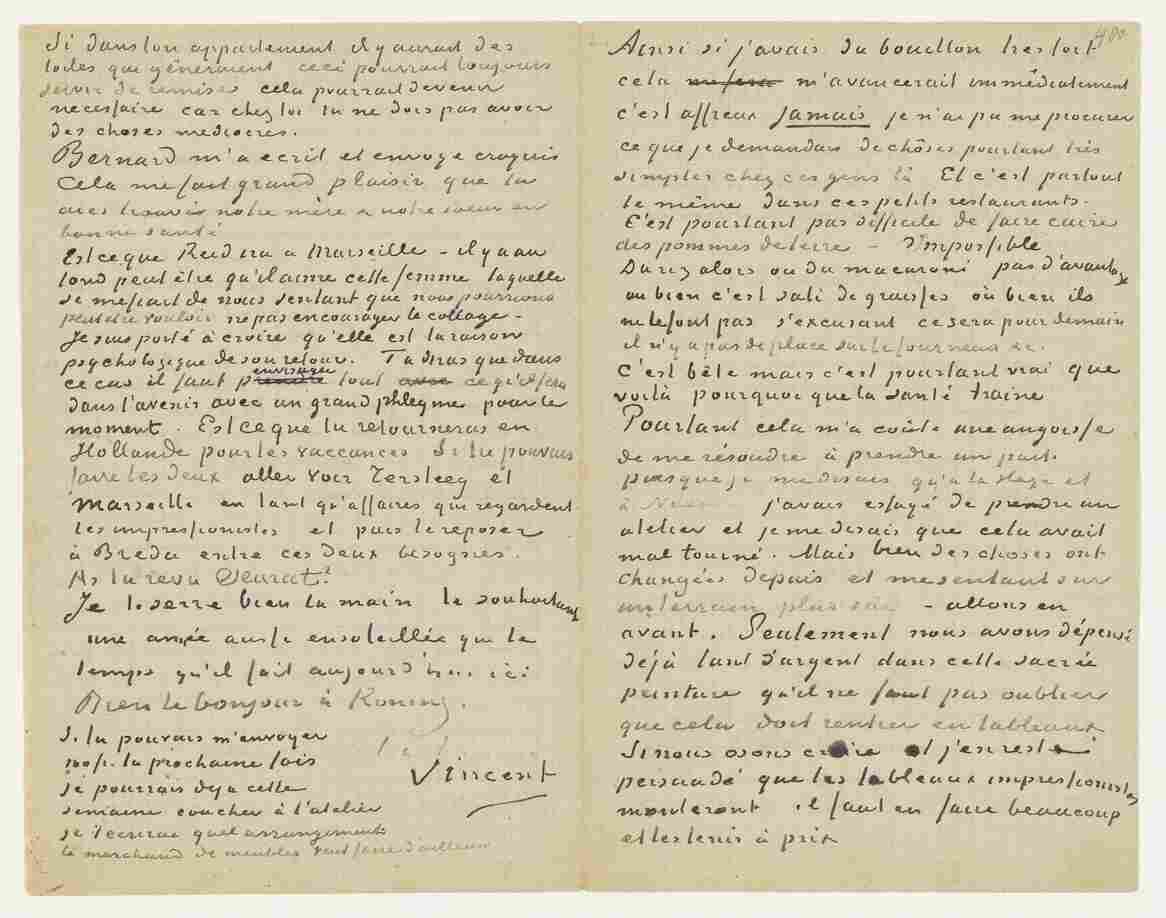 Si dans ton appartement il y aurait des
toiles que gêneraient ceci pourrait toujours
servir de remises cela pourrait devenir
necessaire car chez toi tu ne dois pas avoir
des choses mediocres.
Bernard m'a ecrit et envoye croquis
Cela me fait grand plaisir que tu
aies trouvés notre mère & notre soeur en
bonne santé
Est ce que Reid ira à Marseille – il y a au
fond peut être qu'il aime cette femme laquelle
se mefiait de nous sentant que nous pourrions
peut etre vouloir ne pas encourager le collage –
Je suis porté à croire qu'elle est la raison
psychologique de son retour. Tu diras que dans
envisager
ce cas il faut prendre tout avec ce qu'il fera
dans l'avenir avec un grand phlegme pour le
moment. Est ce que tu retourneras en
Hollande pour les vaccances Si tu pouvais
faire les deux aller voir Tersteeg et
Marseille en tant qu'affaires qui regardent
les impressionistes et puis te reposer
à Breda entre ces deux besognes.
As tu revu Seurat?
Je te serre bien la main te souhaitant
une année aussi ensoleillée que le
temps qu'il fait aujourd'hui ici
Bien le bonjour à Koning.
t. à t.
Vincent
Si tu pouvais m'envoyer
100 fr. la prochaine fois
je pourrais deja cette
semaine coucher à l'atelier
je t'ecrirai quel arrangements
le marchand de meubles veut faire d'ailleurs
400
Ainsi si j'avais du bouillon tres fort
cela me fera m'avancerait immédiatement
c'est affreux jamais je n'ai pu me procurer
ce que je demandais de chôses pourtant très
simples chez ces gens là Et c'est partout
le même dans ces petits restaurants.
C'est pourtant pas difficile de faire cuire
des pommes de terre – Impossible
Du riz alors ou du macaroni pas d'avantage
ou bien c'est sali de graisses où bien ils
ne le font pas s'excusant ce sera pour demain
il n'y a pas de place sur le fourneau &c.
C'est bête mais c'est pourtant vrai que
voilà pourquoi que la santé traine
Pourtant cela m'a coûté une angoisse
de me résoudre à prendre un parti
puisque je me disais qu'à la Haye et
à Nuenen j'avais essayé de prendre un
atelier et je me disais que cela avait
mal tourné. Mais bien des choses ont
changées depuis et me sentant sur
un terrain plus sûr – allons en
avant. Seulement nous avons dépensé
déjà tant d'argent dans cette sacrée
peinture qu'il ne faut pas oublier
que cela doit rentrer en tableaux
Si nous osons croire et j'en reste
persuadé que les tableaux impressionistes
monteront il faut en faire beaucoup
et les tenir à prix